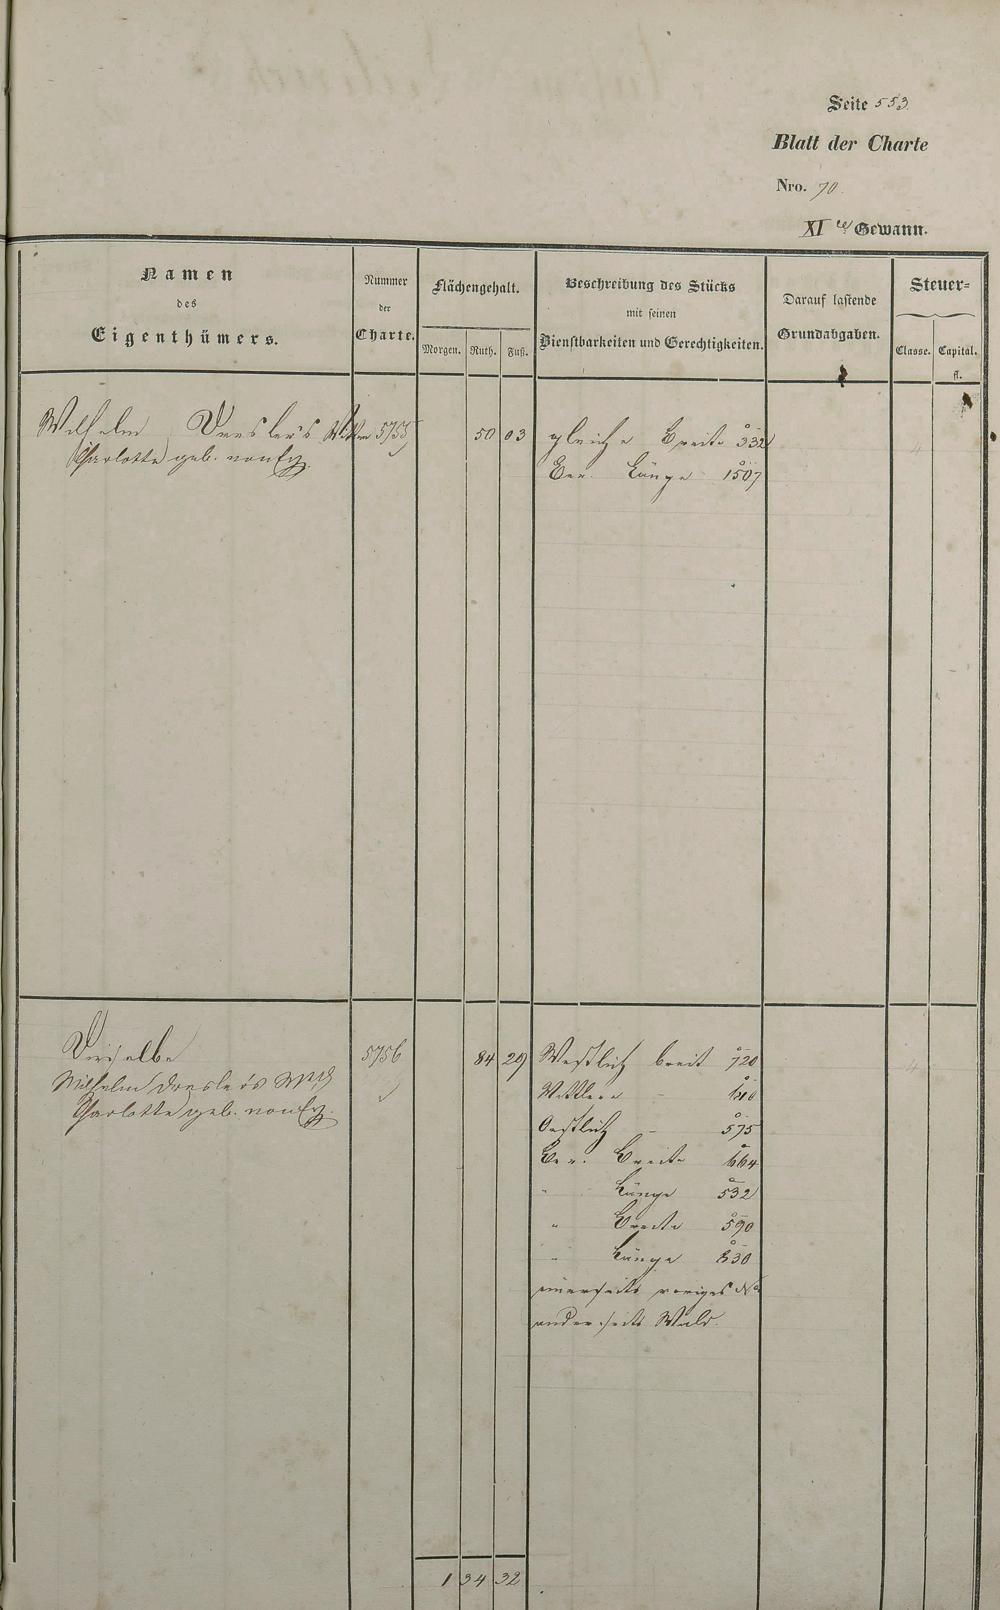 Seite 553.
Blatt der Charte
Nro. 70.
XI te Gewann.
Namen
des
Eigenthümers.
Nummer
der
Charte.
Flächengehalt.
Morgen. Ruth. Fuß.
Beschreibung des Stücks
mit seinen
Dienstbarkeiten und Gerechtigkeiten.
Darauf lastende
Grundabgaben.
Steuer-
Classe. Capital.
fl.
Wilhelm Dressler's 5755 50 03 gleiche Breite 332
Charlotte geb. von Ber. Länge 1507
4
Dieselbe 5756 84 29 Westlich breit 720
4
Wilhelm Dressler's Mittlere -
Charlotte geb. von Oestlich - 575
Ber. Breite 664
" Länge 532
" Breite 590
" Länge 830
einerseits voriges No
anderseits Wald.
1 34 32